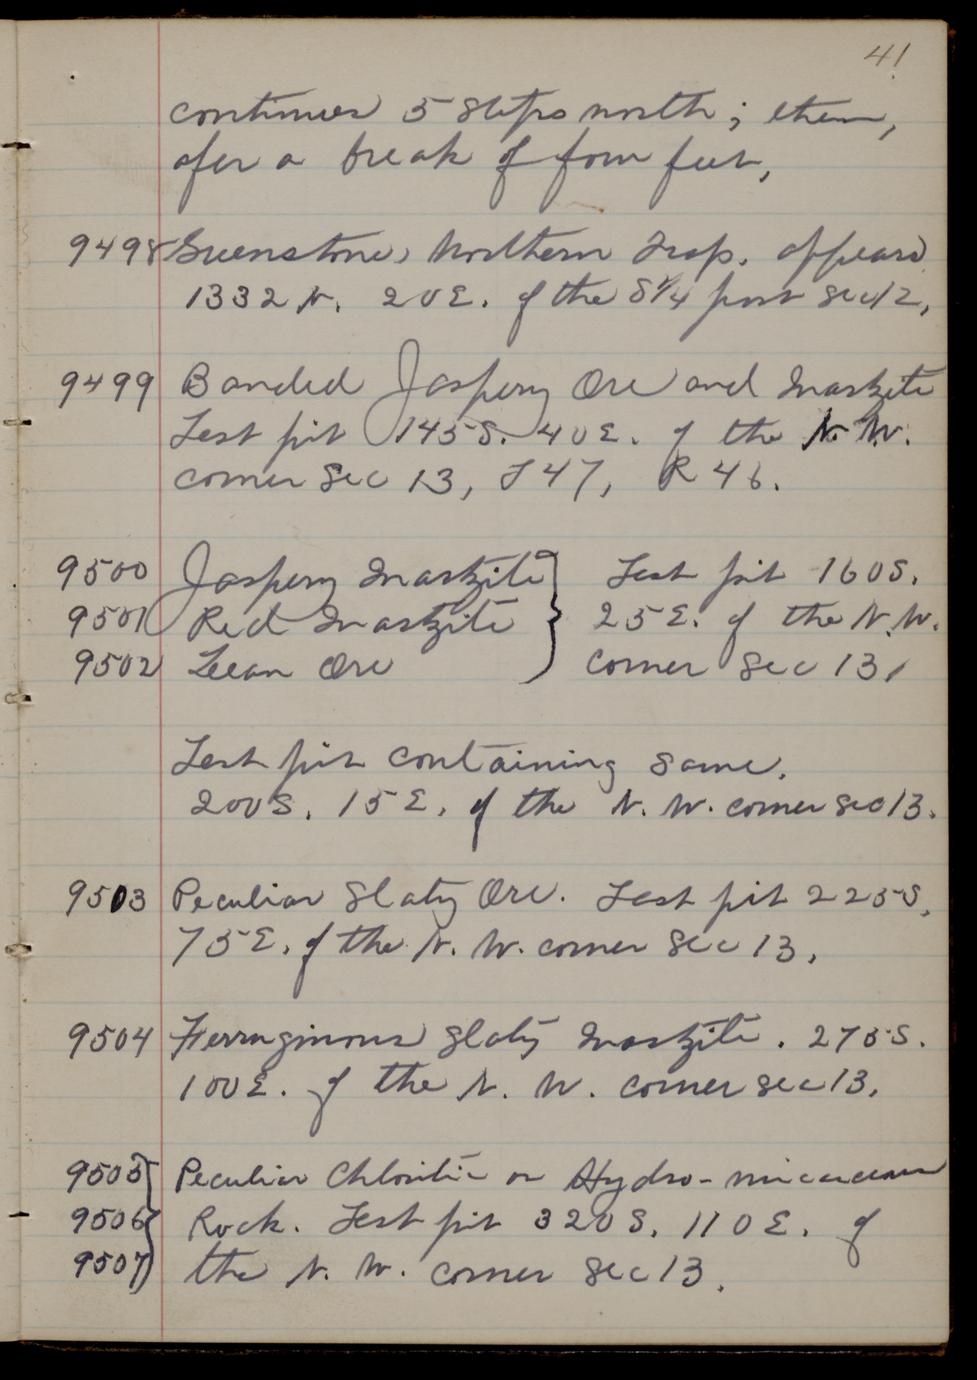 41
continues 5 steps north; then,
afer a break of four feet,
9498 Greenstone, Northern Trap. appears
1332 N. 20 E. of the S 1/4 post Sec 12,
9499 Banded Jaspery Ore and Quartzite
Test pit 145 S. 40 E. of the N. W.
corner Sec 13, T 47, R 46.
9500 Jaspery Quartzite } Test pit 160 S.
9501 Red Quartzite } 25 E. of the N. W.
9502 Lean Ore } corner Sec 13,
Test pit containing same.
200 S. 15 E. of the N. W. corner Sec 13.
9503 Peculiar Slaty Ore. Test pit 225 S,
75 E. of the N. W. corner Sec 13.
9504 Ferruginous Slaty Quartzite. 275 S.
100 E. of the N. W. corner Sec 13.
9505 } Peculiar Chloritic or Hydro-micaceous
9506 } Rock. Test pit 320 S. 110 E. of
9507 } the N. W. corner Sec 13.